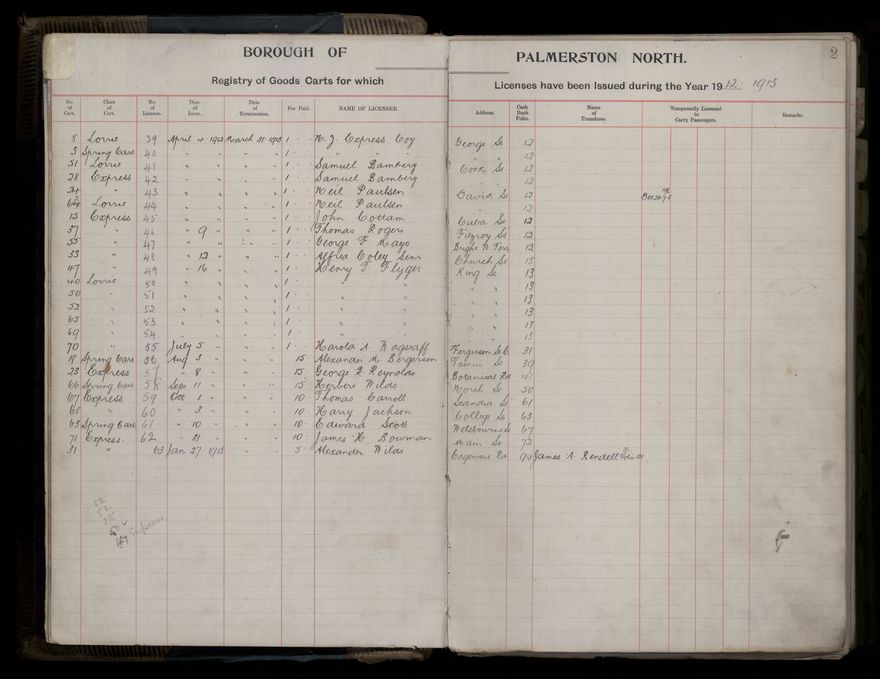 BOROUGH OF PALMERSTON NORTH. 2
Registry of Goods Carts for which Licenses have been Issued during the Year 1912 · 1913
No. of Cart. Class of Cart. No. of License. Date of Issue. Date of Termination. Fee Paid. NAME OF LICENSEE. Address. Cash Book Folio. Name of Transferee. Temporarily Licensed to Carry Passengers. Remarks.
8 Lorrie 39 April 4 1912 March 31 1913 1 · · N. Z. Express Coy George St 12
3 Spring Cart 40 " " " " 1 · · " " " " 12
51 Lorrie 41 " " " " 1 · · Samuel Bamberg Cook St 12
28 Express 42 " " " " 1 · · Samuel Bamberg " " 12
24 " 43 " " " " 1 · · Neil Paulsen David St 12
64 Lorrie 44 " " " " 1 · · Neil Paulsen " 12
15 Express 45 " " " " 1 · · John Cottam Cuba St 12
37 " 46 " 9 " " " 1 · · Thomas Rogers Fitzroy St 12
35 " 47 " " " " 1 · · George F Mayo 12
33 " 48 " 12 " " 1 · · Alfred Coley Senr Church St 13
47 " 49 " 16 " " 1 · · Henry T. Flyger King St 13
40 Lorrie 50 " " " " 1 · · " " " " 13
50 " 51 " " " " 1 · · " " " " 13
52 " 52 " " " " 1 · · " " " " 13
65 " 53 " " " " 1 · · " " " " 13
69 " 54 " " " " 1 · · " " " " 13
70 " 55 July 5 " " " 1 · · Harold A Wagstaff Ferguson St 31
19 Spring Cart 56 Aug 3 " " " 15 · Alexander M. Bergerson 39
23 Express 57 " 8 " " " 15 · George R Reynolds Botanical Rd 41
66 Spring Cart 58 Sept 11 " " " 15 · Herbert Wilds North St 50
67 Express 59 Oct 1 " " " 10 · Thomas Carroll Scandia St 61
68 " 60 " 3 " " " 10 · Harry Jackson College St 63
63 Spring Cart 61 " 10 " " " 10 · Edward Scott Welbourne St 67
71 Express 62 " 31 " " " 10 · James H. Bowman Main St 72
31 " 63 Jan 27 1913 " " 5 · Alexander Wilds Edgeware Rd 94 James A. Rendell
47 Express